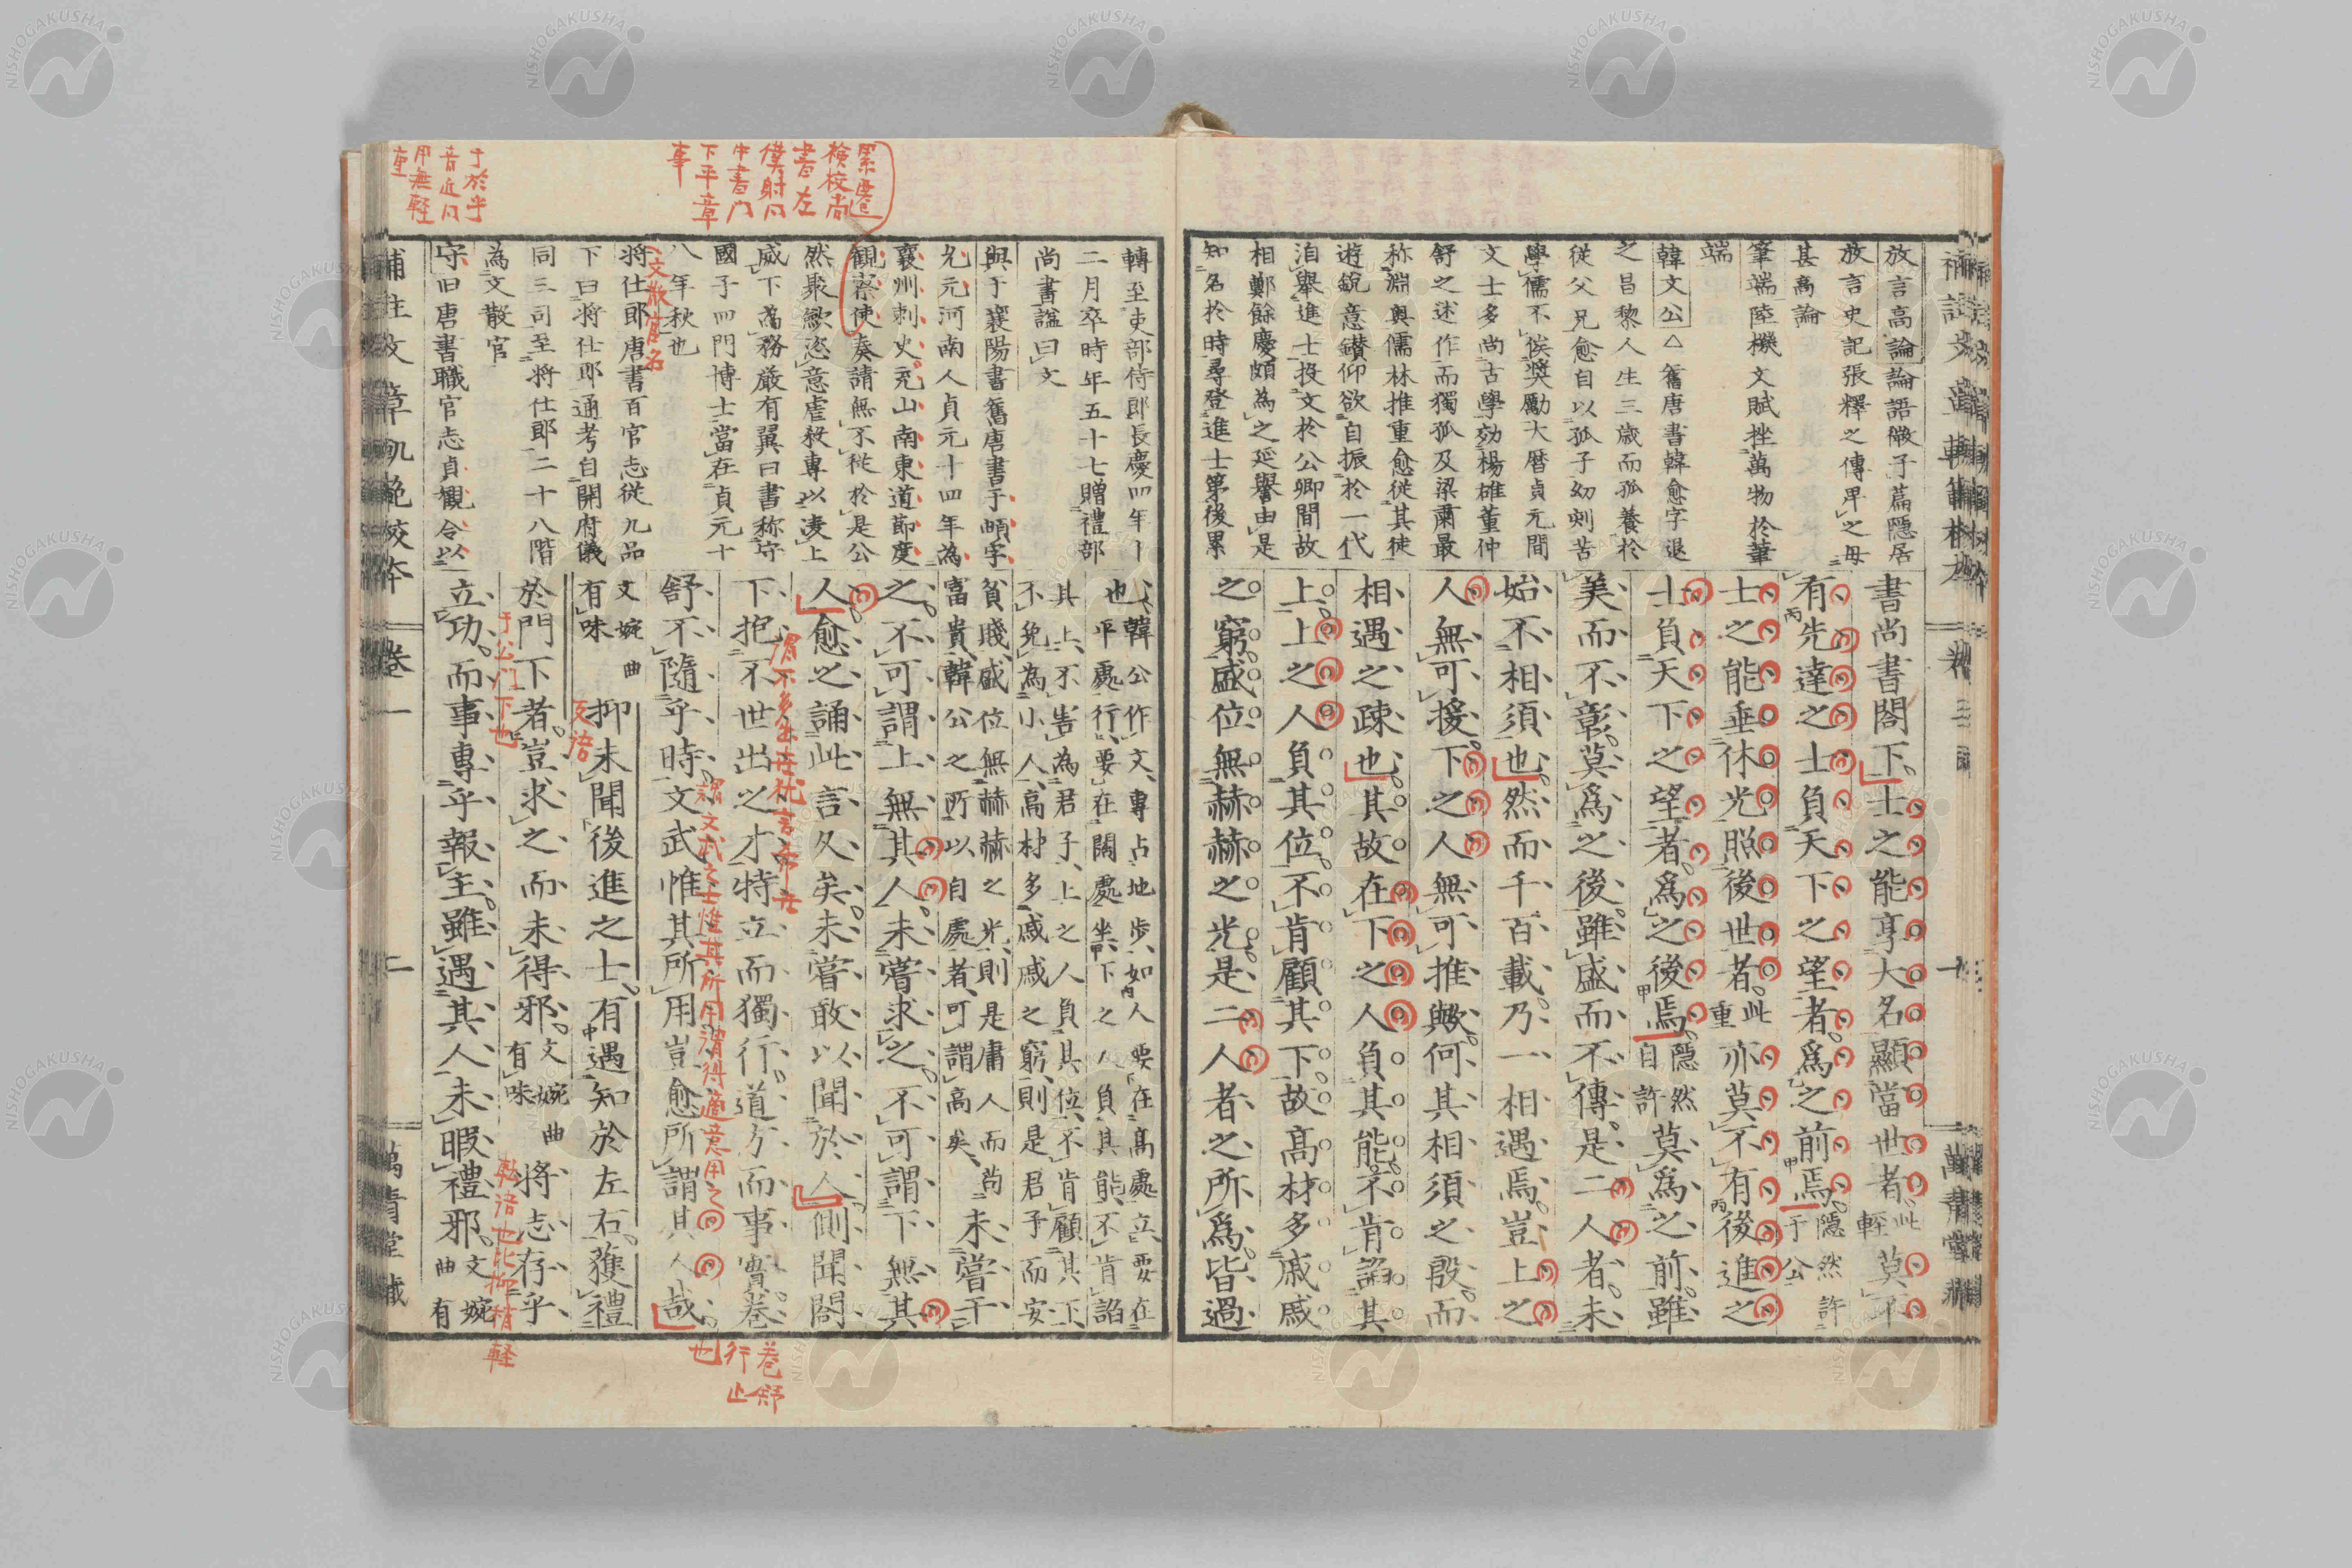 放言高論論語微子篇隱居
放言史記張釋之傳卑之毋
甚高論
筆端陸機文賦挫萬物於筆
端
韓文公△舊唐書韓愈字退
之昌黎人生三歲而孤養於
從父兄愈自以孤子幼刻苦
學儒不俟奬勵大曆貞元間
文士多尚古學効楊雄董仲
舒之述作而獨孤及梁肅最
称淵奧儒林推重愈從其徒
遊銳意鑚仰欲自振於一代
洎舉進士投文於公卿間故
相鄭餘慶頗為之延譽由是
知名於時尋登進士第後累
書尚書閣下。士之能享大名顯當世者此輕莫不
有先達之士負天下之望者爲之前焉。隱然許于公
士之能垂休光照後世者。此重亦莫不有後進之
士負天下之望者爲之後焉。隱然自許莫爲之前雖
美而不彰莫爲之後雖盛而不傳。是二人者未
始不相須也。然而千百載乃一相遇焉。豈上之
人無可援下之人無可推歟。何其相須之殷而
相遇之疎也。其故在下之人負其能不肯諂其
上。上之人負其位不肯顧其下。故高材多戚戚
之窮。盛位無赫赫之光。是二人者之所爲皆過
轉至吏部侍郎長慶四年十
二月卒時年五十七贈禮部
尚書謚曰文
與于襄陽書舊唐書于頔字
允元河南人貞元十四年為
襄州刺史充山南東道節度
観察使奏請無不從於是公
然聚歛恣意虐殺專以凌上
威下為務厳有翼曰書称守
國子四門博士當在貞元十
八年秋也
將仕郎唐書百官志從九品
下曰將仕郎通考自開府儀
同三司至將仕郎二十八階
為文散官
守旧唐書職官志貞観令以
也韓公作文、專占地步、如人要在高處立、要在
平處行、要在闊處坐、下之人負其能、不肯諂
其上、不告為君子、上之人負其位、不肯顧其下、
不免為小人、高材多戚戚之窮、則是君子而安
貧賤、盛位無赫赫之光、則是庸人而尚
富貴、韓公之所以自處者、可謂高矣、未嘗干
之。不可謂上無其人。未嘗求之。不可謂下無其
人。愈之誦此言久矣。未嘗敢以聞於人。側聞閣
下。抱不世出之才。特立而獨行。道方而事實。卷
舒不隨乎時。文武惟其所用。豈愈所謂其人哉
文婉曲有味抑未聞後進之士有遇知於左右。獲禮
於門下者。豈求之而未得邪。文婉曲有味將志存乎
立功。而事專乎報主。雖遇其人未暇禮邪。文婉曲有
補註文章軌範校本
卷一
二
累遷
檢校尚
書左
僕射同
中書門
下平章
事
于於乎
音近同
用無軽
重
文散官名
反語
于公門下也
謂文武之士惟其所用謂得適意用之
卷舒
行止
也
NISHOGAKUSHA